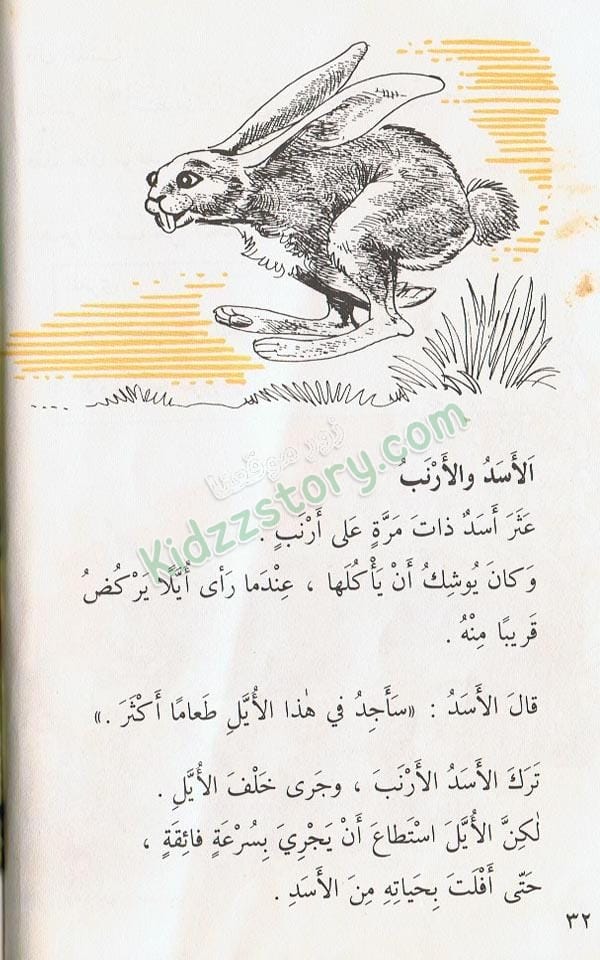 زوروا موقعنا
Kidzzstory.com
اَلأَسَدُ والأَرْنَبُ
عَثَرَ أَسَدٌ ذاتَ مَرَّةٍ عَلى أَرْنَبٍ .
وَكانَ يُوشِكُ أَنْ يَأْكُلَها ، عِنْدَما رَأى أُيَّلًا يَرْكُضُ
قَريبًا مِنْهُ .
قالَ الأَسَدُ : «سَأَجِدُ في هٰذا الأُيَّلِ طَعامًا أَكْثَرَ .»
تَرَكَ الأَسَدُ الأَرْنَبَ ، وجَرى خَلْفَ الأُيَّلِ .
لٰكِنَّ الأُيَّلَ اسْتَطاعَ أَنْ يَجْرِيَ بِسُرْعَةٍ فائِقَةٍ ،
حَتّى أَفْلَتَ بِحَياتِهِ مِنَ الأَسَدِ .
٣٢